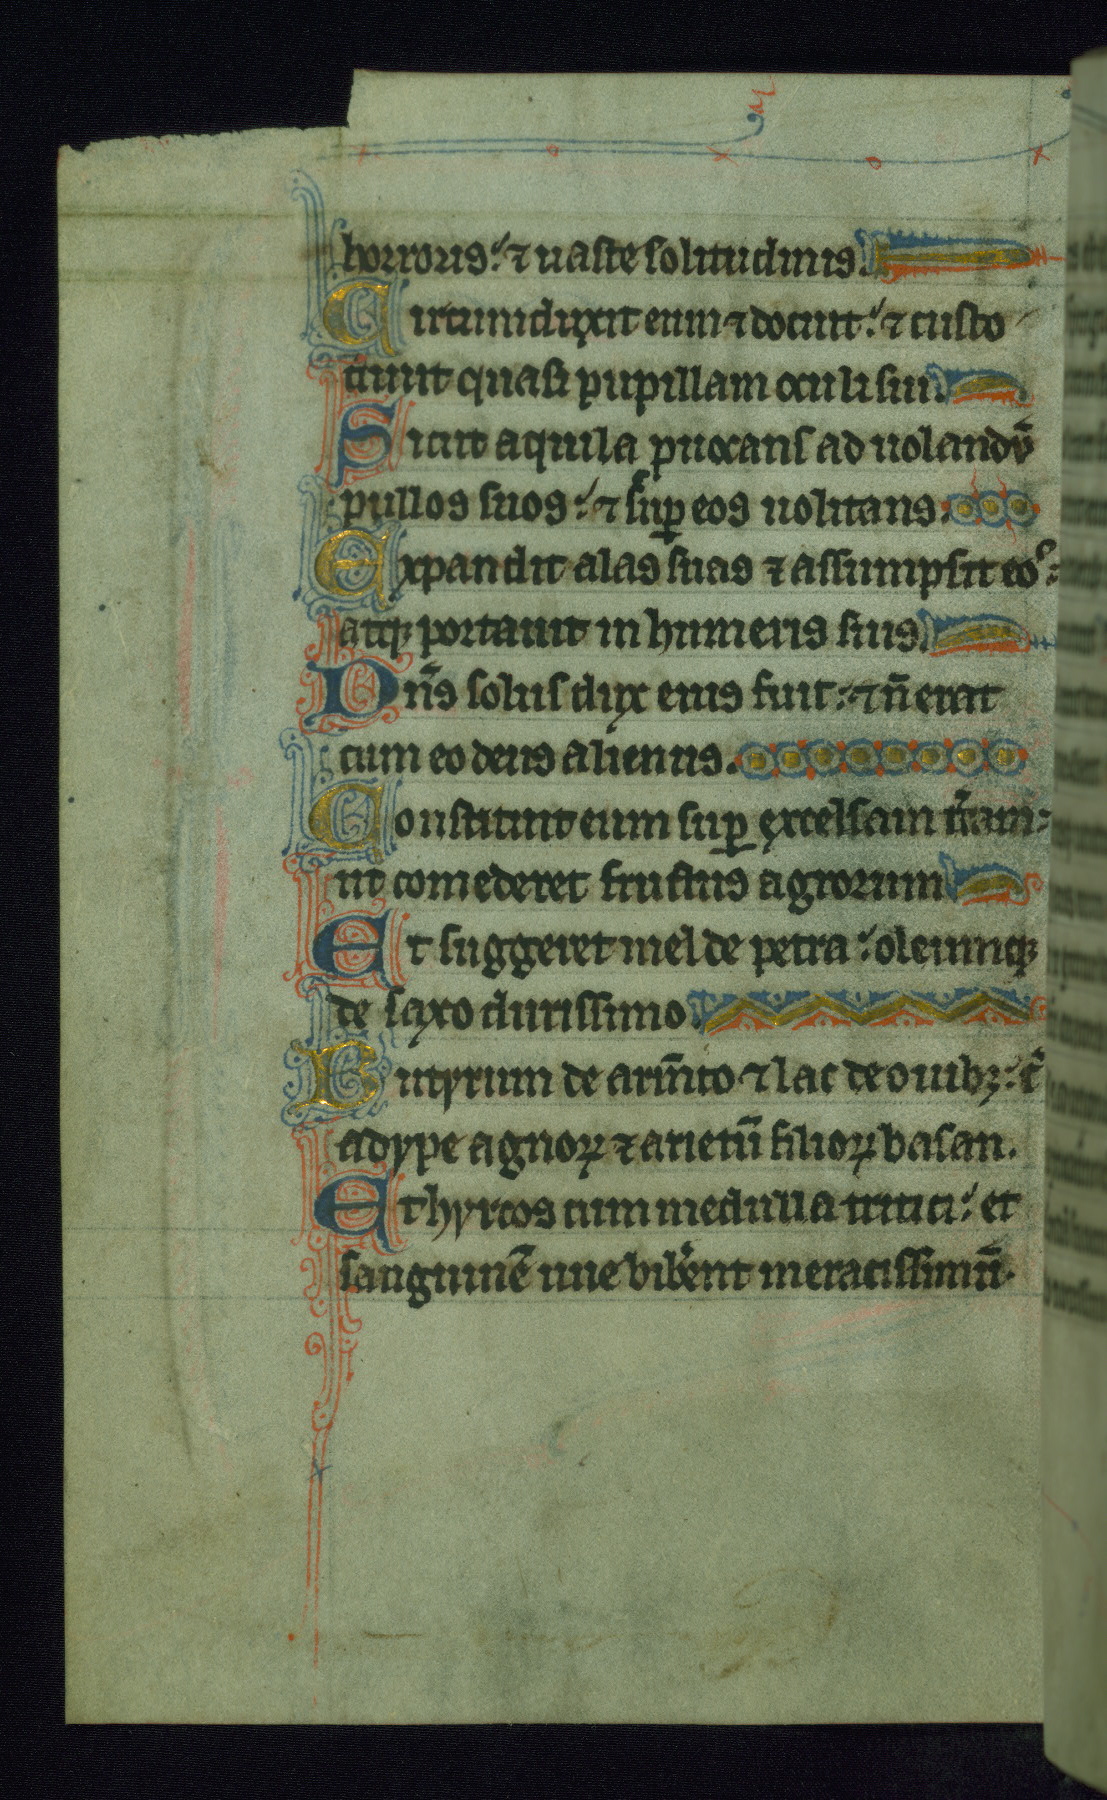 horroris: ⁊ uaste solitudinis.
Circumduxit eum ⁊ docuit: ⁊ custo
diuit quasi pupillam oculi sui.
Sicut aquila prouocans ad uolandū
pullos suos: ⁊ sup̱ eos uolitans.
Expandit alas suas ⁊ assumpsit eos:
atq; portauit in humeris suis.
Dn̄s solus dux eius fuit: ⁊ n̄ erat
cum eo deus alienus.
Constituit eum sup̱ excelsam t̄ram:
ut comederet fructus agrorum
Et suggeret mel de petra: oleumq;
de saxo durissimo.
Butyrum de arm̄to ⁊ lac de ouibȝ: c̄
adype agnoꝝ ⁊ arietū filioꝝ basan.
Et hyrcos cum medulla tritici: et
sanguinē uue bib̄ent meracissimū.